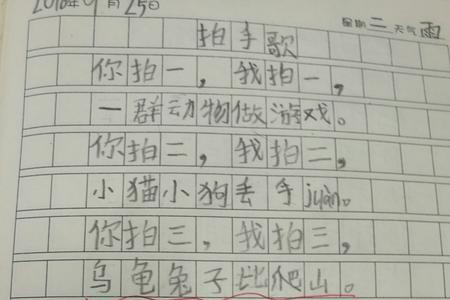 2018年9月25日 星期二 天气雨
拍手歌
你拍一，我拍一，
一群动物做游戏。
你拍二，我拍二，
小猫小狗丢手juàn。
你拍三，我拍三，
乌龟兔子比爬山。